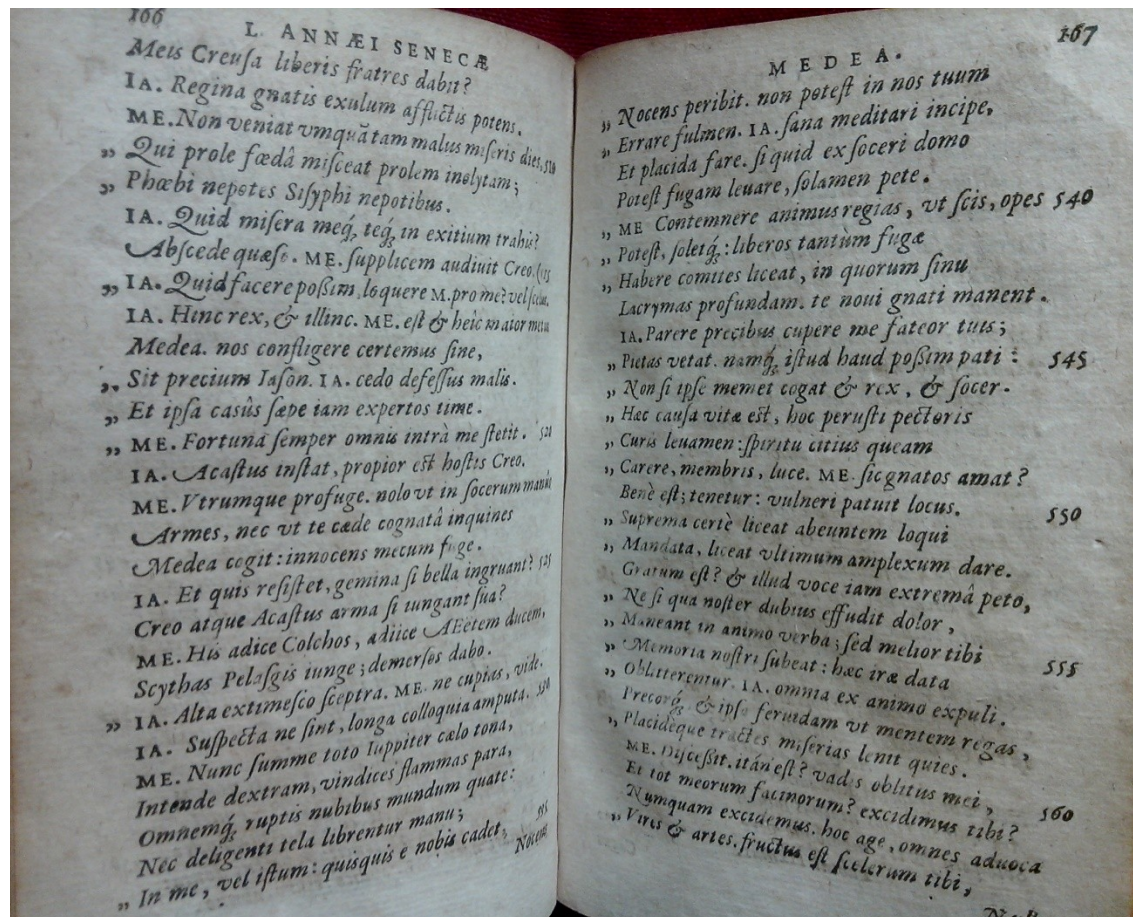 166
L. ANNÆI SENECÆ
Meis Creuſa liberis fratres dabit?
IA. Regina gnatis exulum afflictis potens.
ME. Non veniat vmquã tam malus miſeris dies, 510
„ Qui prole fœdâ miſceat prolem inclytam;
„ Phœbi nepotes Siſyphi nepotibus.
IA. Quid miſera meq́; teq́; in exitium trahis?
Abſcede quæſo. ME. ſupplicem audiuit Creo. (515
„ IA. Quid facere poßim, loquere M. pro me? vel ſcelus.
IA. Hinc rex, & illinc. ME. eſt & heic maior metus
Medea. nos confligere certemus ſine,
„ Sit precium Iaſon. IA. cedo defeſſus malis.
„ Et ipſa casûs ſæpe iam expertos time.
„ ME. Fortuna ſemper omnis intrà me ſtetit. 520
IA. Acaſtus inſtat, propior eſt hoſtis Creo.
ME. Vtrumque profuge. nolo vt in ſocerum manûs
Armes, nec vt te cæde cognatâ inquines
Medea cogit: innocens mecum fuge.
IA. Et quis reſiſtet, gemina ſi bella ingruant? 525
Creo atque Acaſtus arma ſi iungant ſua?
ME. His adice Colchos, adiice AEetem ducem,
Scythas Pelaſgis iunge; demerſos dabo.
„ IA. Alta extimeſco ſceptra. ME. ne cupias, vide.
IA. Suſpecta ne ſint, longa colloquia amputa. 530
ME. Nunc ſumme toto Iuppiter cælo tona,
Intende dextram, vindices flammas para,
Omnemq́; ruptis nubibus mundum quate:
Nec deligenti tela librentur manu; 535
„ In me, vel iſtum: quisquis e nobis cadet,
Nocens
167
MEDEA.
„ Nocens peribit. non poteſt in nos tuum
„ Errare fulmen. IA. ſana meditari incipe,
Et placida fare. ſi quid ex ſoceri domo
Poteſt fugam leuare, ſolamen pete.
„ ME Contemnere animus regias, vt ſcis, opes 540
„ Poteſt, ſoletq́;: liberos tantùm fugæ
„ Habere comites liceat, in quorum ſinu
Lacrymas profundam. te noui gnati manent.
IA. Parere precibus cupere me fateor tuis;
„ Pietas vetat. namq́; iſtud haud poßim pati: 545
„ Non ſi ipſe memet cogat & rex, & ſocer.
„ Hæc cauſa vitæ eſt, hoc peruſti pectoris
„ Curis leuamen: ſpiritu citius queam
„ Carere, membris, luce. ME. ſic gnatos amat?
Benè eſt; tenetur: vulneri patuit locus. 550
„ Suprema certè liceat abeuntem loqui
„ Mandata, liceat vltimum amplexum dare.
Gratum eſt? & illud voce iam extremâ peto,
„ Ne ſi qua noſter dubius effudit dolor,
„ Maneant in animo verba; ſed melior tibi
„ Memoria noſtri ſubeat: hæc iræ data 555
„ Oblitterentur. IA. omnia ex animo expuli.
Precorq́; & ipſe feruidam vt mentem regas,
„ Placidèque tractes miſerias lenit quies.
ME. Diſceßit. itán eſt? vadis oblitus mei,
Et tot meorum facinorum? excidimus tibi? 560
Numquam excidemus. hoc age, omnes aduoca
„ Vires & artes. fructus eſt ſcelerum tibi,